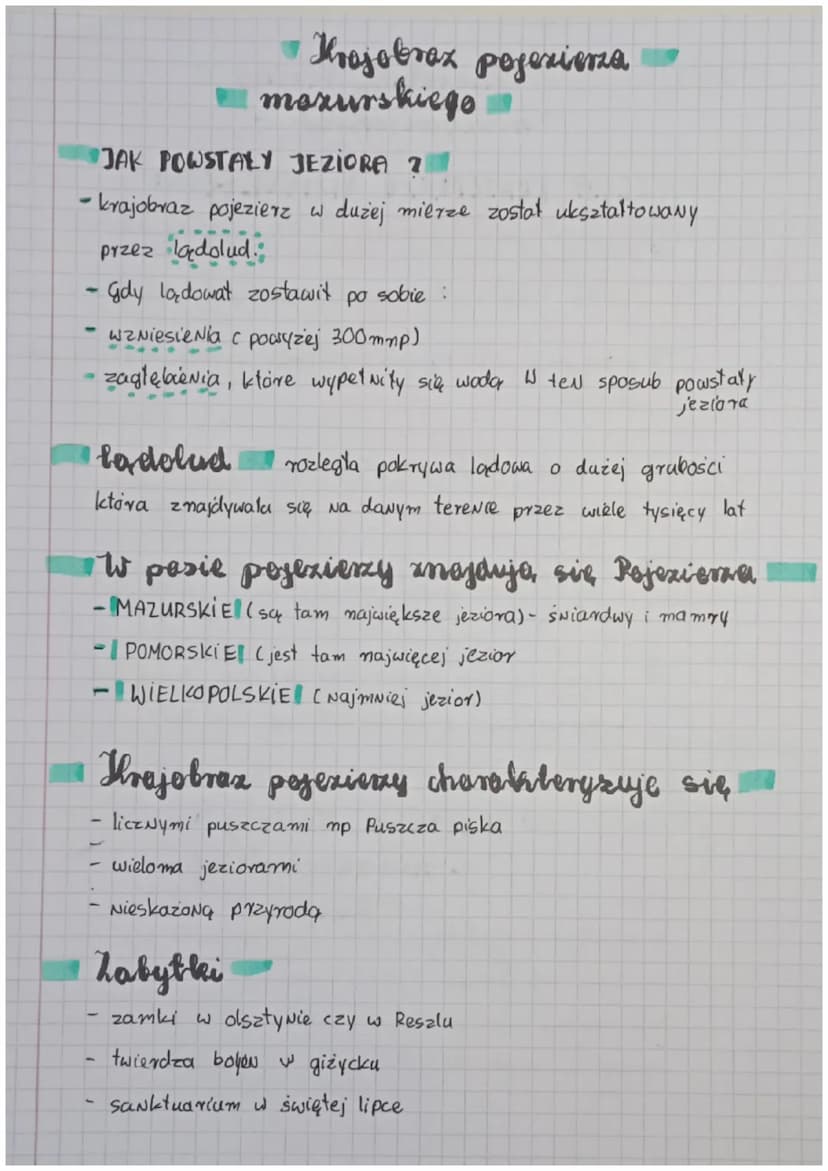 Krajobraz pojezierza
mazurskiego
JAK POWSTAŁY JEZIORA ?
- krajobraz pojezierz w dużej mierze został ukształtowany
przez lądolud.
- Gdy lądował zostawił po sobie :
- wzniesienia ( powyżej 300 mnp)
- zagłębienia, które wypełniły się wodą W ten sposub powstały
jeziora
Lądolud rozległa pokrywa lądowa o dużej grubości
która znajdywała się na danym terenie przez wiele tysięcy lat
W pasie pojezierzy znajdują się Pojezierza
- MAZURSKIE (są tam największe jeziora) - śniardwy i mamry
- POMORSKIE (jest tam najwięcej jezior
- WIELKOPOLSKIE (najmniej jezior)
Krajobraz pojezierzy charakteryzuje się
- licznymi puszczami np Puszcza piska
- wieloma jeziorami
- nieskażoną przyrodą
Zabytki
- zamki w olsztynie czy w Reszlu
- twierdza boyen w giżycku
- sanktuarium w świętej lipce